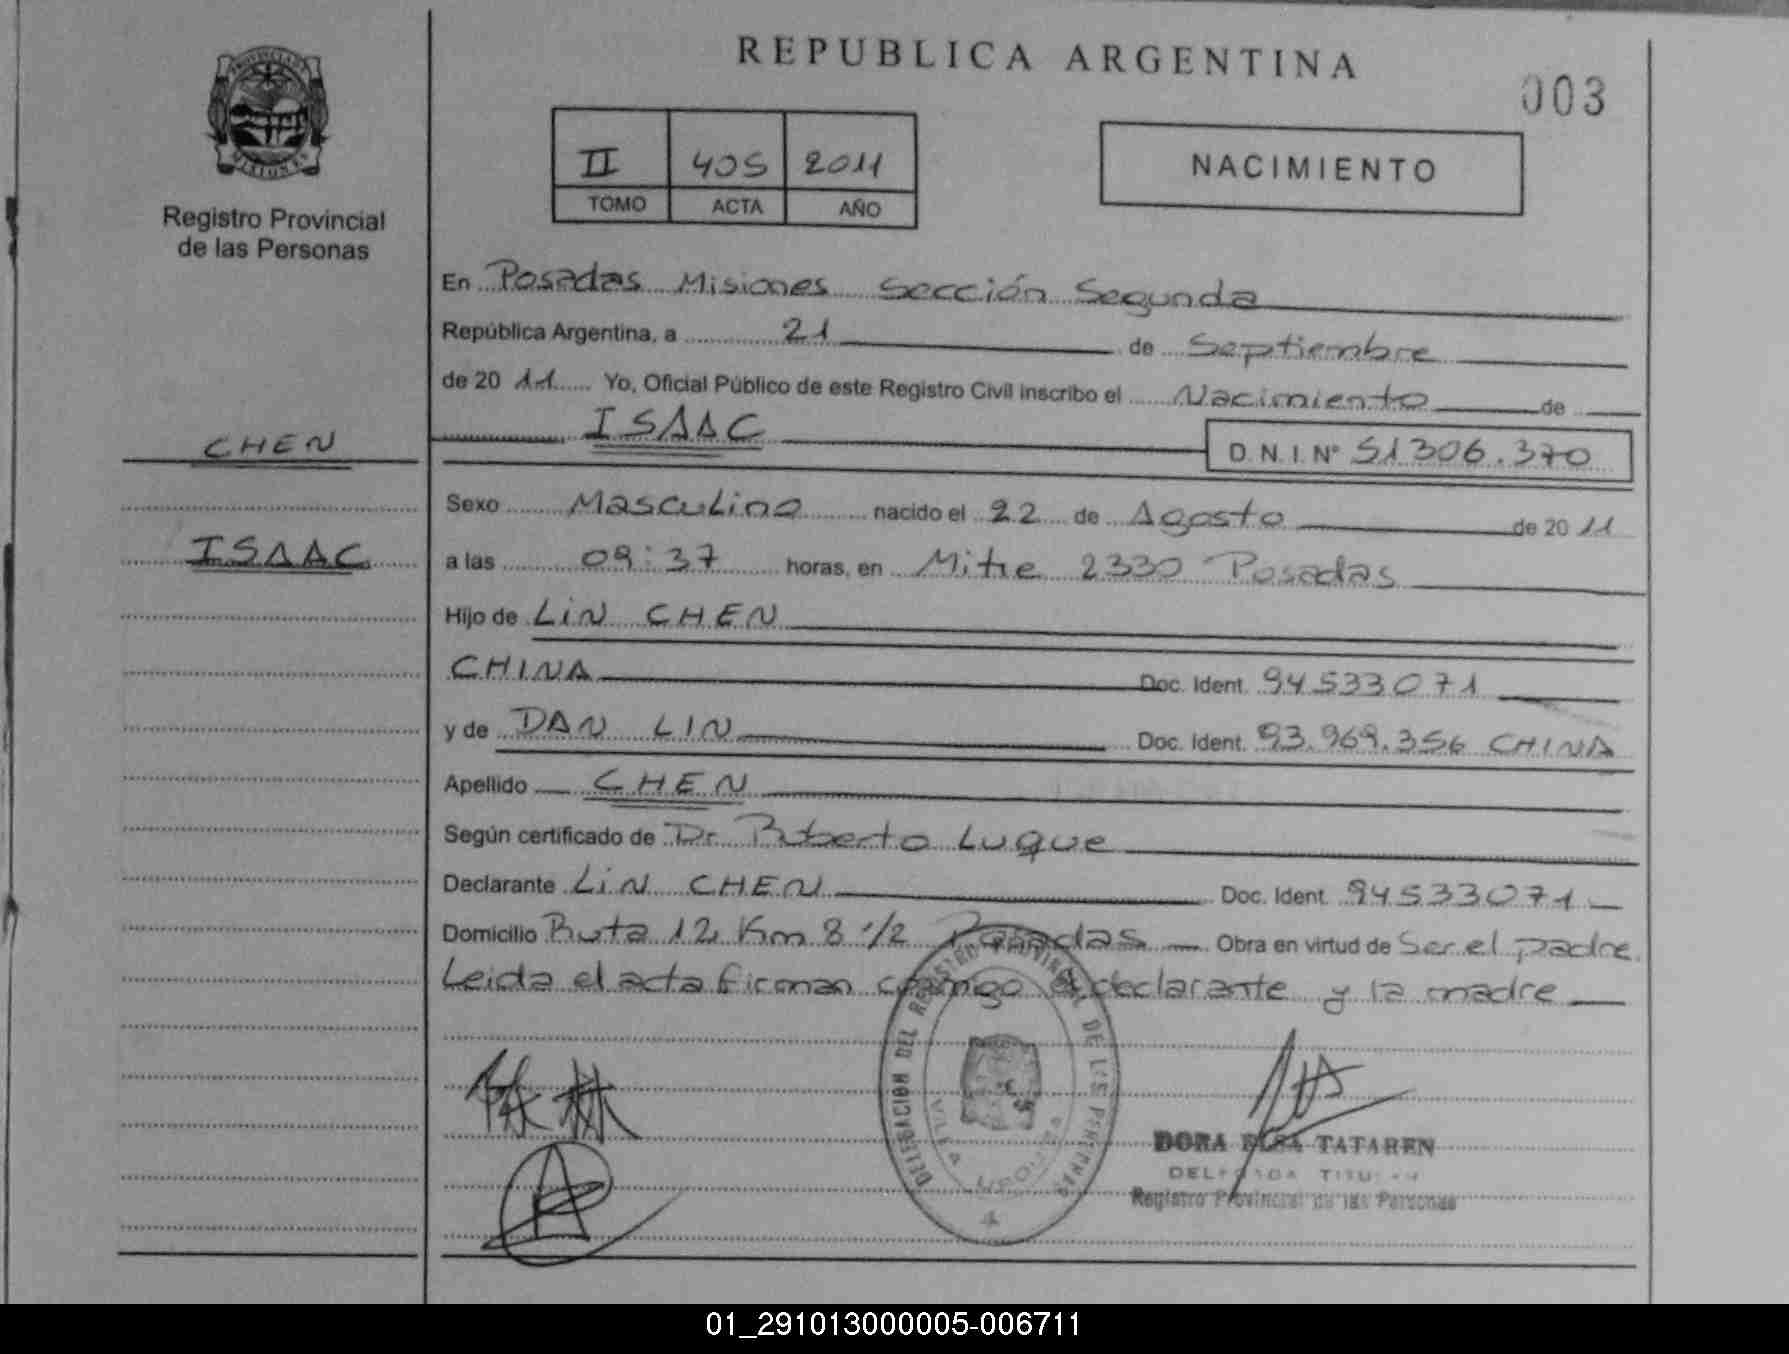 REPUBLICA ARGENTINA
003
PROVINCIA DE
MISIONES
Registro Provincial
de las Personas
II 405 2011
TOMO ACTA AÑO
NACIMIENTO
En Posadas Misiones Sección Segunda
República Argentina, a 21 de Septiembre
de 20 11 Yo, Oficial Público de este Registro Civil inscribo el Nacimiento de
CHEN
ISAAC D.N.I.N° 51306.370
Sexo Masculino nacido el 22 de Agosto de 20 11
ISAAC
a las 09:37 horas, en Mitre 2330 Posadas
Hijo de LiN CHEN
CHINA Doc. Ident. 94533071
y de DAN LIN Doc. Ident. 93.969.356 CHINA
Apellido CHEN
Según certificado de Dr. Roberto Luque
Declarante LiN CHEN Doc. Ident. 94533071
Domicilio Ruta 12 Km 8 1/2 Posadas Obra en virtud de Ser el padre
Leida el acta firman conmigo el declarante y la madre
DELEGACION DEL REGISTRO PROVINCIAL DE LAS PERSONAS
VILLA URQUIZA
陈林
DORA ELSA TATAREN
DELEGADA TITULAR
Registro Provincial de las Personas
01_291013000005-006711